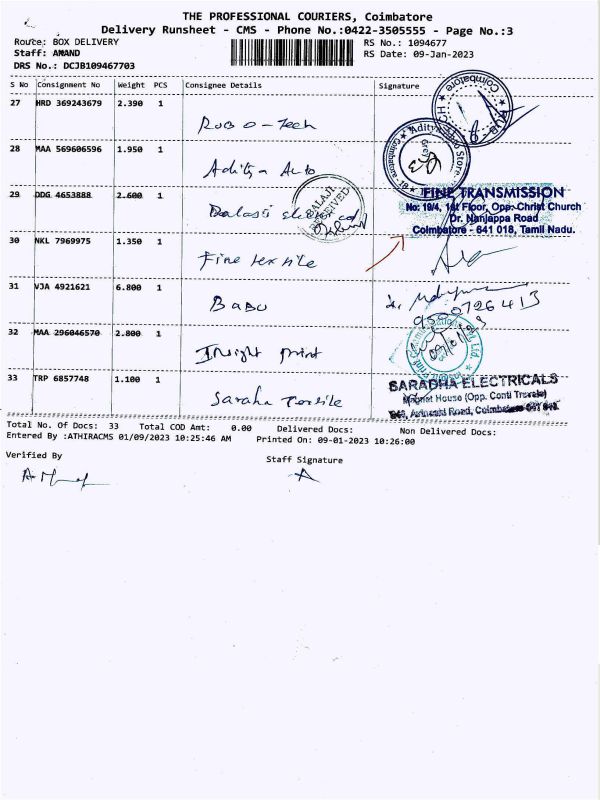 THE PROFESSIONAL COURIERS, Coimbatore
Delivery Runsheet - CMS - Phone No.:0422-3505555 - Page No.:3
Route: BOX DELIVERY
RS No.: 1094677
Staff: AMAND
RS Date: 09-Jan-2023
DRS No.: DCJB109467703
S No Consignment No Weight PCS Consignee Details Signature
27 HRD 369243679 2.390 1
Robo-Tech
Coimbatore
28 MAA 569606596 1.950 1
Aditya Auto
Aditya Store
29 DDG 4653888 2.600 1
BALAJI
RECEIVED
FINE TRANSMISSION
No: 19/4, 1st Floor, Opp. Christ Church
Dr. Nanjappa Road
Coimbatore - 641 018, Tamil Nadu.
30 NKL 7969975 1.350 1
Fine textile
31 VJA 4921621 6.800 1
Babu
9500726413
32 MAA 296046570 2.800 1
Insight Print
33 TRP 6857748 1.100 1
Saraha Textile
SARADHA ELECTRICALS
Magnet House (Opp. Conti Travels)
Avinashi Road, Coimbatore
Total No. Of Docs: 33 Total COD Amt: 0.00 Delivered Docs: Non Delivered Docs:
Entered By :ATHIRACMS 01/09/2023 10:25:46 AM Printed On: 09-01-2023 10:26:00
Verified By
Staff Signature